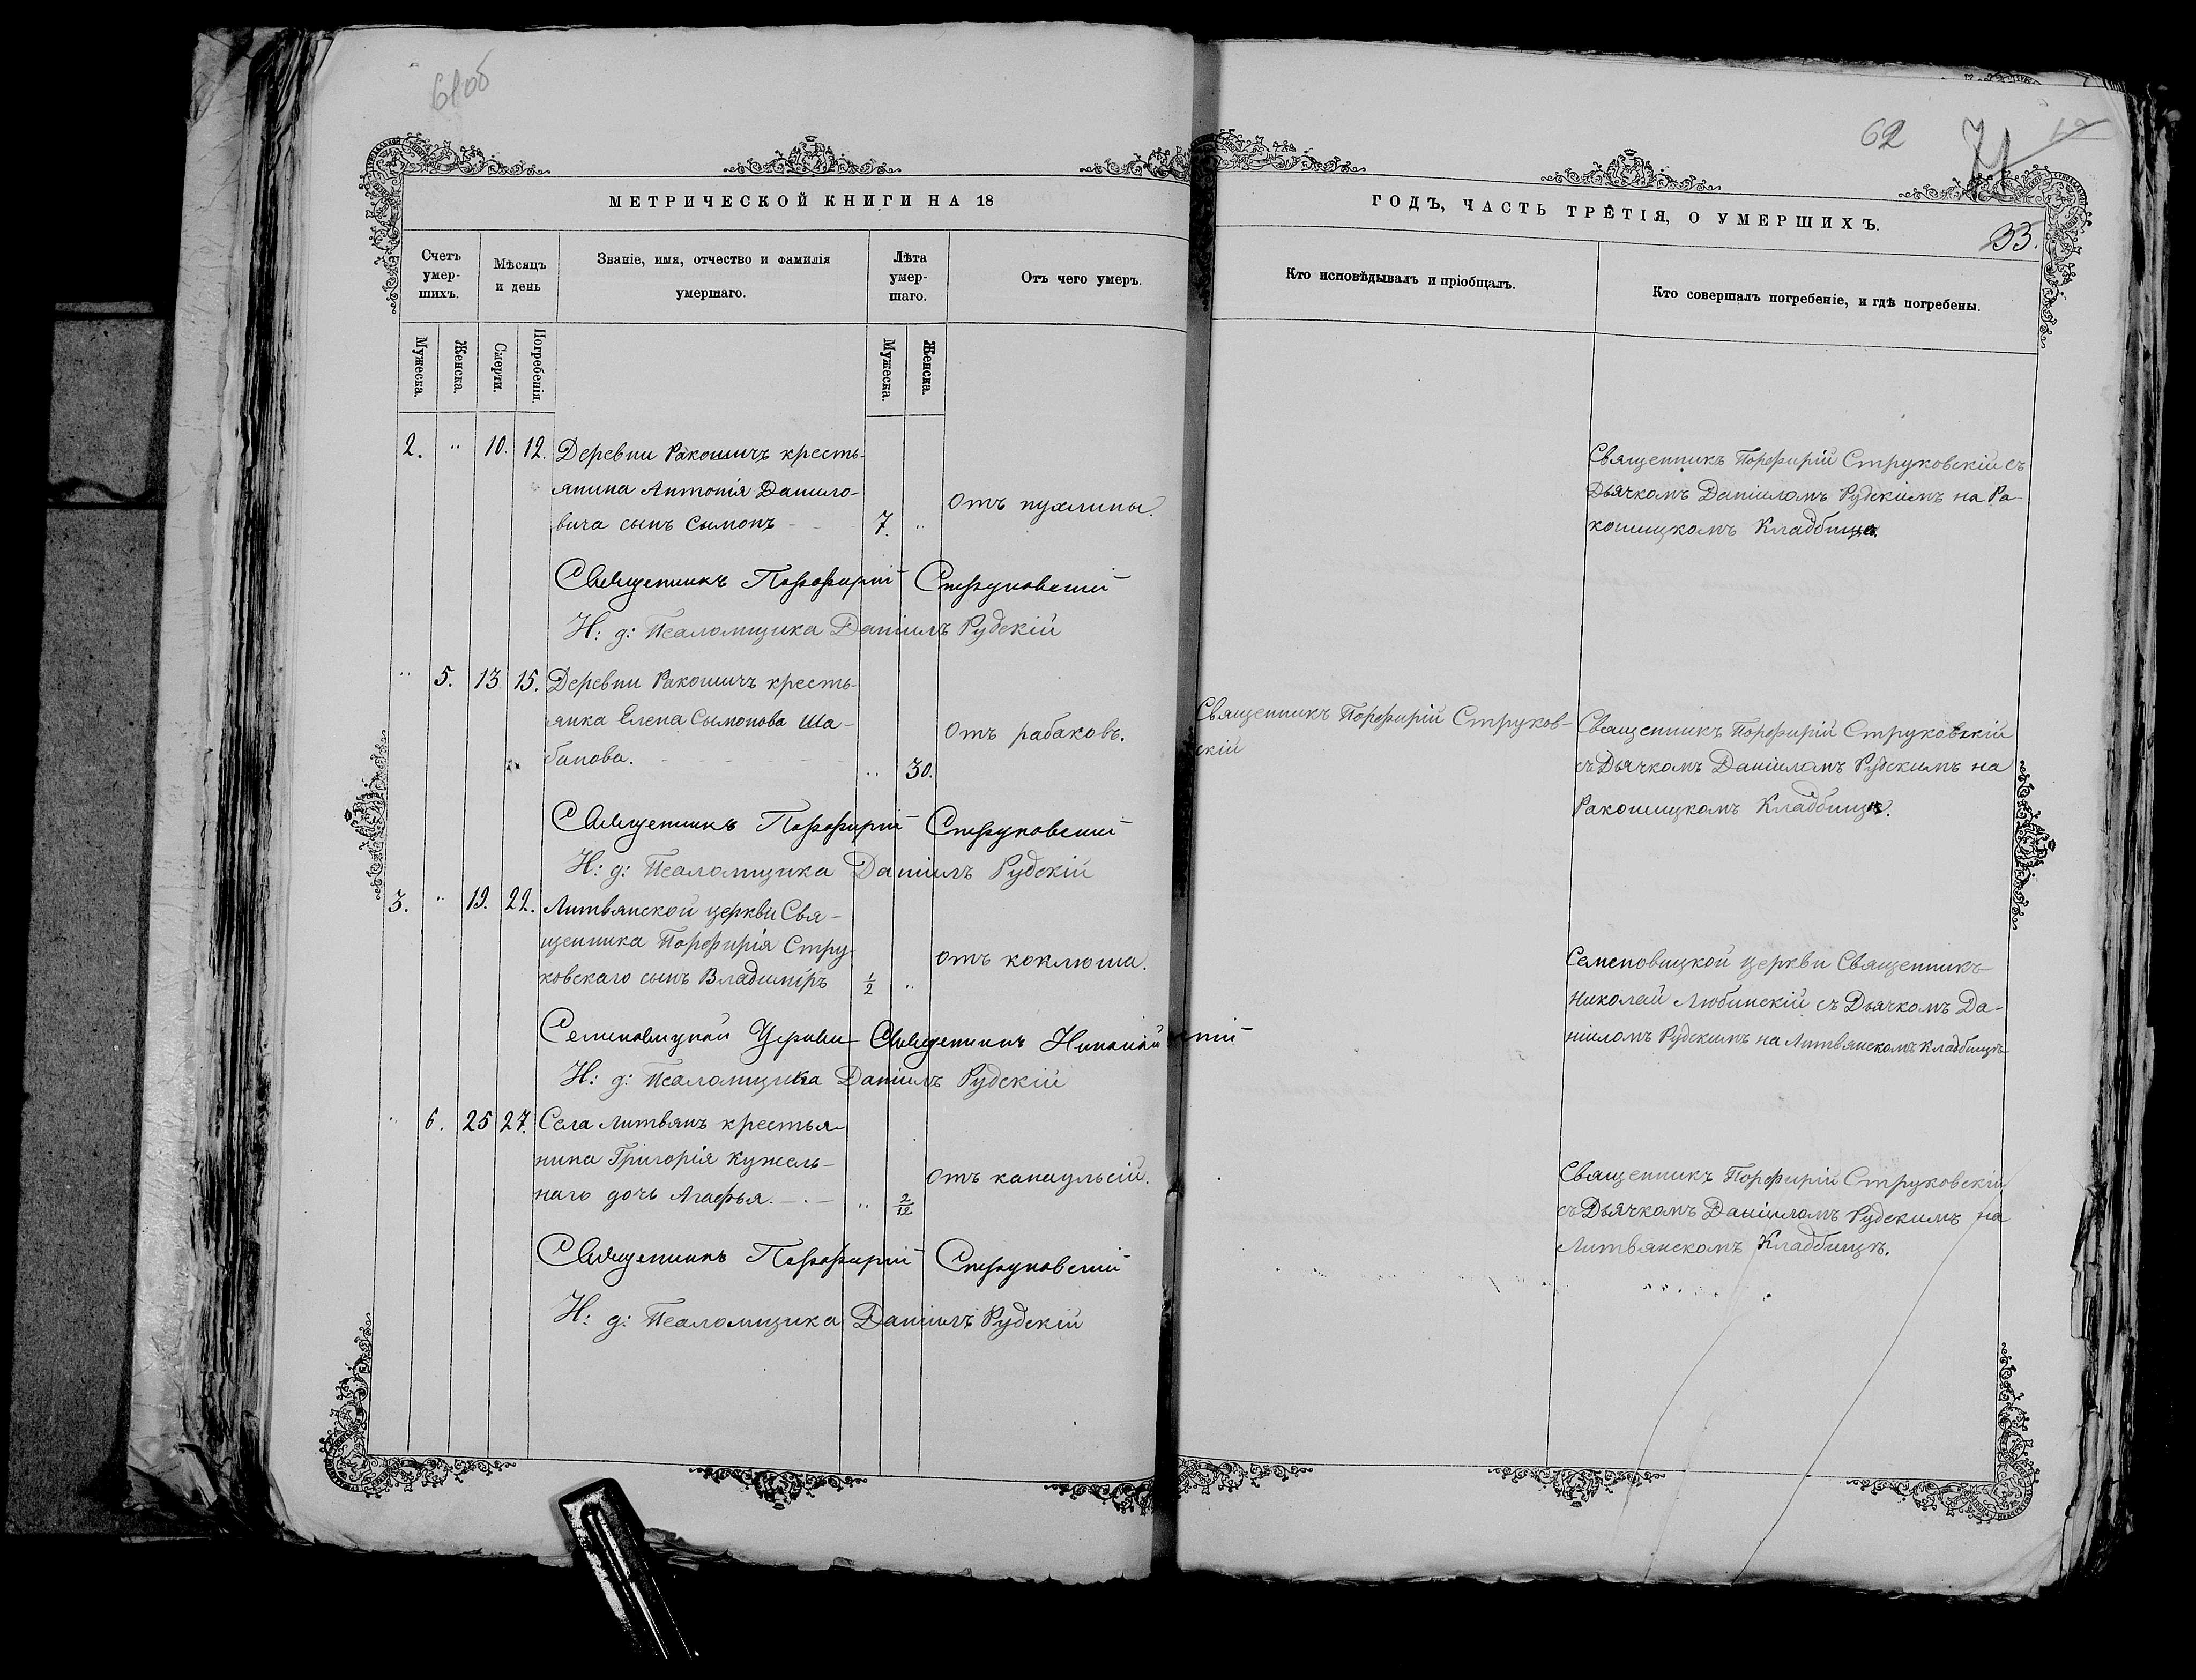 61об
62
71
33.
МЕТРИЧЕСКОЙ КНИГИ НА 18
ГОДЪ, ЧАСТЬ ТРЕТІЯ, О УМЕРШИХЪ.
Счетъ умер-шихъ.
Мѣсяцъ и день
Званіе, имя, отчество и фамилія умершаго.
Лѣта умер-шаго.
Отъ чего умеръ.
Кто исповѣдывалъ и пріобщалъ.
Кто совершалъ погребеніе, и гдѣ погребены.
Мужеска.
Женска.
Смерти.
Погребенія.
Мужеска.
Женска.
2. " 10. 12. Деревни Ракошичъ кресть-
янина Антонія Данило-
вича сынъ Сымонъ - - 7. " отъ пухлины.
Священникъ Порфирій Струковскій съ
Дьячкомъ Даніиломъ Рудскимъ на Ра-
кошицкомъ Кладбищѣ.
Священникъ Порфирій Струковскій
Н: д: Псаломщика Даніилъ Рудскій
" 5. 13 15. Деревни Ракошичъ кресть-
янка Елена Сымонова Ша-
банова. " 30. Отъ рабаковъ.
Священникъ Порфирій Струков-
скій
Священникъ Порфирій Струковскій
съ Дьячкомъ Даніиломъ Рудскимъ на
Ракошицкомъ Кладбищѣ.
Священникъ Порфирій Струковскій
Н: д: Псаломщика Даніилъ Рудскій
3. " 19. 22. Литвянской церкви Свя-
щенника Порфирія Стру-
ковскаго сынъ Владиміръ 1/2 " отъ коклюша.
Семеновицкой церкви Священникъ
Николай Любинскій съ Дьячкомъ Да-
ніиломъ Рудскимъ на Литвянскомъ Кладбищѣ
Семеновицкой Церкви Священникъ Николай
Н: д: Псаломщика Даніилъ Рудскій
" 6. 25 27. Села Литвянъ крестья-
нина Григорія Кужель-
наго дочь Агафья. - . - " 2/12 отъ канвульсій.
Священникъ Порфирій Струковскій
съ Дьячкомъ Даніиломъ Рудскимъ на
Литвянскомъ Кладбищѣ.
Священникъ Порфирій Струковскій
Н: д: Псаломщика Даніилъ Рудскій